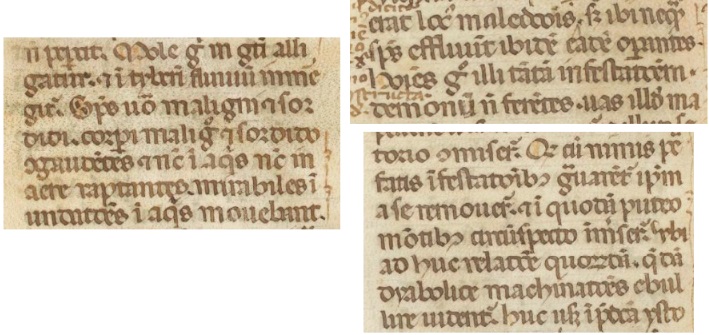 n̄ peꝑcit. Mole gͥ in gēti alli
gatur. ⁊ ī tyberī fluuiū īmē
git᷑. Sp̄s u͞o maligni ⁊ sor
didi. corpi malig͛ ⁊ sordido
ꝯgaudētes ⁊ nc̄ ī aq̄s nc̄ in
aere raptantes. mirabiles ī
undatōes ī aq̄s mouebant.
erat loc᷒ maledcōis. sꝫ ibi neqͣ̄
sp̄s effluūt ibidē eadē oꝑantes.
hoı͞es gͥ illi tātā infestatōem.
demonū n̄ ferētes. uas illđ ma
torio ꝯmiser̄. Qͥ cū nimis p̄e
fatis īfestatōibꝫ gͣuaret᷑ ip̄m
a se remouer̄. ⁊ ī quodā puteo
mōtibꝫ circūsepto īmser̄. ubi
ad huc relatōe quorꝫdā. q̄dā
dyabolice machinatōes ebul
lire uident᷑. huc usꝫ ī p̄dc̄a ysto